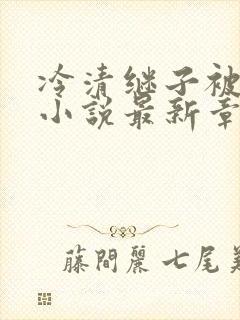 冷清继子被
小说最新章
藤間麗 七尾美